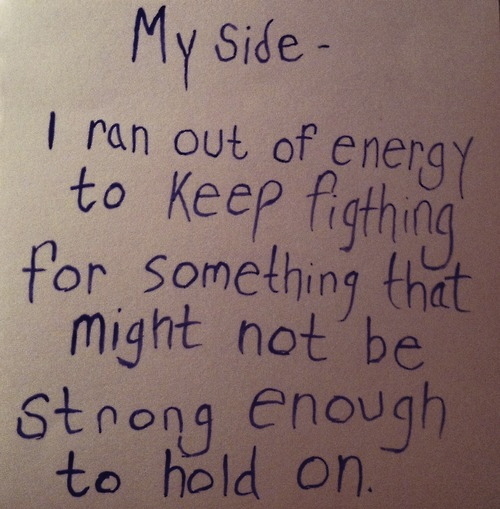 My side -
I ran out of energy
to keep figthing
for something that
might not be
strong enough
to hold on.